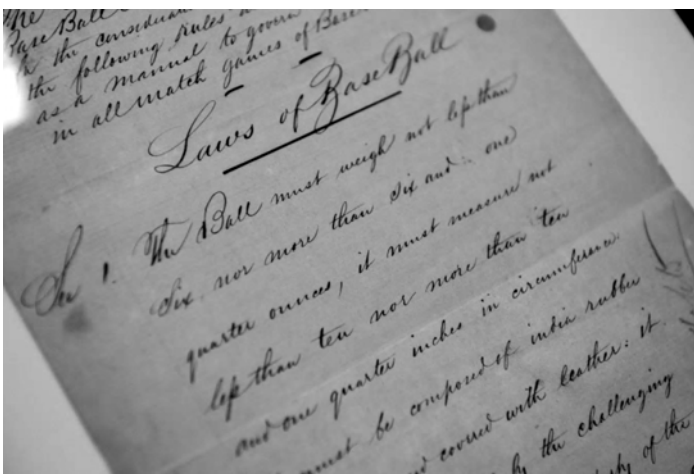 The
Base Ball
the
the following Rules
as a manual to govern
in all match games of Base
Laws of Base Ball
Sec 1. The Ball must weigh not less than
Six, nor more than Six and one
quarter ounces, it must measure not
less than ten nor more than ten
and one quarter inches in circumference
must be composed of india rubber
and covered with leather: it
by the challenging
of the